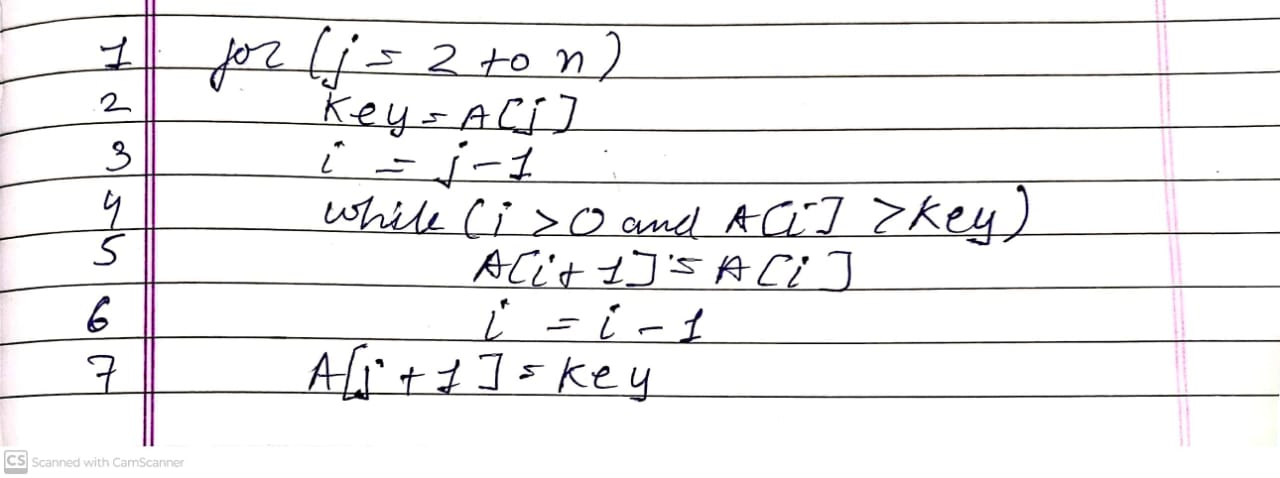 1 for (j = 2 to n)
2 Key = A[j]
3 i = j-1
4 while (i > 0 and A[i] > Key)
5 A[i+1] = A[i]
6 i = i - 1
7 A[j+1] = Key
CS Scanned with CamScanner